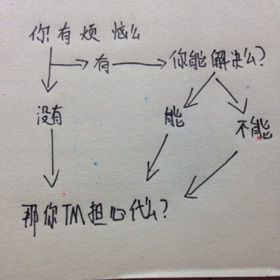 你有烦恼么
有 你能解决么?
没有 能 不能
那你TM担心什么?